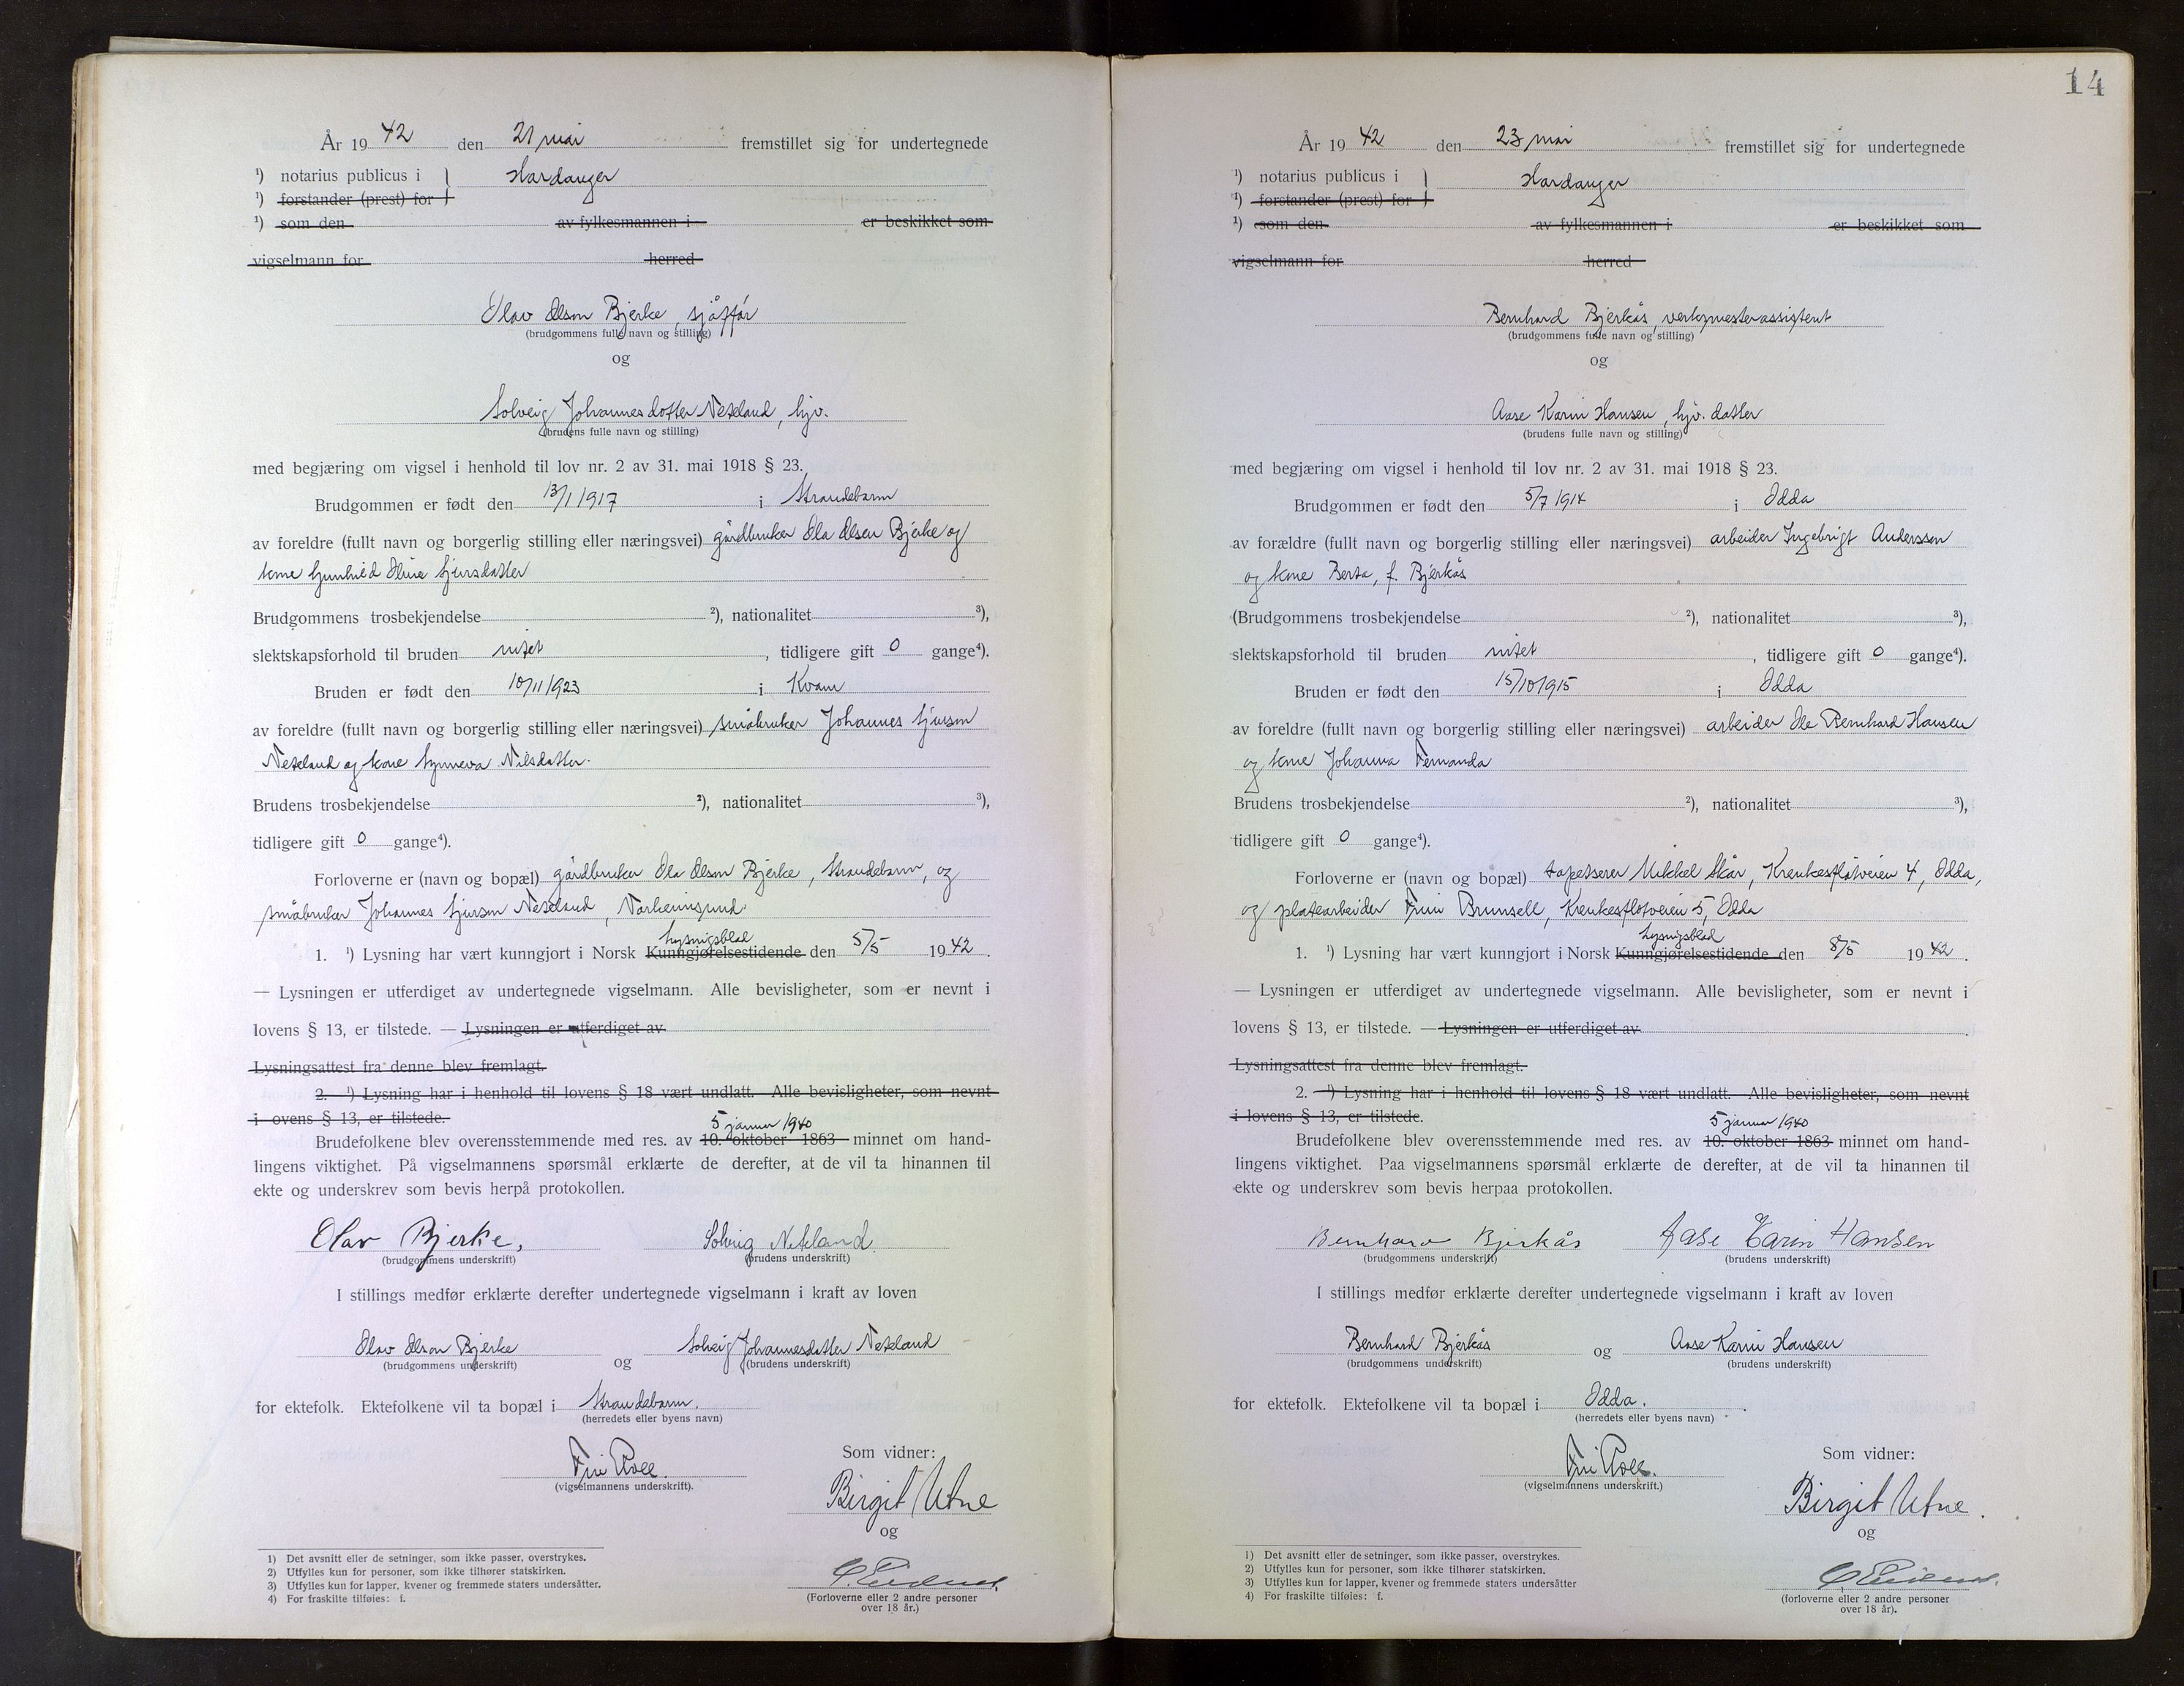 År 19 42 den 21 mai fremstillet sig for undertegnede
¹) notarius publicus i } Hardanger
¹) forstander (prest) for
¹) som den av fylkesmannen i er beskikket som
vigselmann for herred
Olav Olson Bjerke, sjåffør
(brudgommens fulle navn og stilling)
og
Solveig Johannesdotter Neteland, hjv.
(brudens fulle navn og stilling)
med begjæring om vigsel i henhold til lov nr. 2 av 31. mai 1918 § 23.
Brudgommen er født den 13/1 1917 i Strandebarm
av foreldre (fullt navn og borgerlig stilling eller næringsvei) gårdbruker Ola Olsen Bjerke og
kone Gunhild Oline Sjursdatter
Brudgommens trosbekjendelse ²), nationalitet ³),
slektskapsforhold til bruden intet, tidligere gift 0 gange⁴).
Bruden er født den 10/11 1923 i Kvam
av foreldre (fullt navn og borgerlig stilling eller næringsvei) småbruker Johannes Sjurson
Neteland og kone Synneva Nilsdatter.
Brudens trosbekjendelse ²), nationalitet ³),
tidligere gift 0 gange⁴).
Forloverne er (navn og bopæl) gårdbruker Ola Olson Bjerke, Strandebarm, og
småbruker Johannes Sjurson Neteland, Norheimsund.
Lysingsblad
1. ¹) Lysning har vært kunngjort i Norsk Kunngjørelsestidende den 5/5 19 42.
— Lysningen er utferdiget av undertegnede vigselmann. Alle bevisligheter, som er nevnt i
lovens § 13, er tilstede. — Lysningen er utferdiget av
Lysningsattest fra denne blev fremlagt.
2. ¹) Lysning har i henhold til lovens § 18 vært undlatt. Alle bevisligheter, som nevnt
i ovens § 13, er tilstede.
5 januar 1940
Brudefolkene blev overensstemmende med res. av 10. oktober 1863 minnet om hand-
lingens viktighet. På vigselmannens spørsmål erklærte de derefter, at de vil ta hinannen til
ekte og underskrev som bevis herpå protokollen.
Olav Bjerke, Solveig Neteland
(brudgommens underskrift) (brudens underskrift)
I stillings medfør erklærte derefter undertegnede vigselmann i kraft av loven
Olav Olson Bjerke og Solveig Johannesdatter Neteland
(brudgommens underskrift) (brudens underskrift)
for ektefolk. Ektefolkene vil ta bopæl i Strandebarm.
(herredets eller byens navn)
Som vidner:
(vigselmannens underskrift).
Birgit Utne
og
(Forloverne eller 2 andre personer
over 18 år.)
1) Det avsnitt eller de setninger, som ikke passer, overstrykes.
2) Utfylles kun for personer, som ikke tilhører statskirken.
3) Utfylles kun for lapper, kvener og fremmede staters undersåtter.
4) For fraskilte tilføies: f.
14
År 19 42 den 23 mai fremstillet sig for undertegnede
¹) notarius publicus i } Hardanger
¹) forstander (prest) for
¹) som den av fylkesmannen i er beskikket som
vigselmann for herred
Bernhard Bjerkås, verksmesterassistent
(brudgommens fulle navn og stilling)
og
Aase Karin Hansen, hjv. datter
(brudens fulle navn og stilling)
med begjæring om vigsel i henhold til lov nr. 2 av 31. mai 1918 § 23.
Brudgommen er født den 5/7 1914 i Odda
av forældre (fullt navn og borgerlig stilling eller næringsvei) arbeider Ingebrigt Anderssen
og kone Berta, f. Bjerkås
(Brudgommens trosbekjendelse ²), nationalitet ³),
slektskapsforhold til bruden intet, tidligere gift 0 gange⁴).
Bruden er født den 15/10 1915 i Odda
av foreldre (fullt navn og borgerlig stilling eller næringsvei) arbeider Ole Bernhard Hansen
og kone Johanna Fernanda
Brudens trosbekjendelse ²), nationalitet ³),
tidligere gift 0 gange⁴).
Forloverne er (navn og bopæl) tapetserer Mikkel Skår, Krenkesflotveien 4, Odda,
og platearbeider Brunsell, Krenkesflotveien 5, Odda
Lysingsblad
1. ¹) Lysning har vært kunngjort i Norsk Kunngjørelsestidende den 8/5 19 42.
— Lysningen er utferdiget av undertegnede vigselmann. Alle bevisligheter, som er nevnt i
lovens § 13, er tilstede. — Lysningen er utferdiget av .
Lysningsattest fra denne blev fremlagt.
2. ¹) Lysning har i henhold til lovens § 18 vært undlatt. Alle bevisligheter, som nevnt
i lovens § 13, er tilstede.
5 januar 1940
Brudefolkene blev overensstemmende med res. av 10. oktober 1863 minnet om hand-
lingens viktighet. Paa vigselmannens spørsmål erklærte de derefter, at de vil ta hinannen til
ekte og underskrev som bevis herpaa protokollen.
Bernhard Bjerkås Aase Karin Hansen
(brudgommens underskrift) (brudens underskrift)
I stillings medfør erklærte derefter undertegnede vigselmann i kraft av loven
Bernhard Bjerkås og Aase Karin Hansen
(brudgommens underskrift) (brudens underskrift)
for ektefolk. Ektefolkene vil ta bopæl i Odda.
(herredets eller byens navn)
Som vidner:
(vigselmannens underskrift.)
Birgit Utne.
og
(forloverne eller 2 andre personer
over 18 år).
1) Det avsnitt eller de setninger, som ikke passer, overstrykes.
2) Utfylles kun for personer, som ikke tilhører statskirken.
3) Utfylles kun for lapper, kvener og fremmede staters undersåtter
4) For fraskilte tilføies: f.